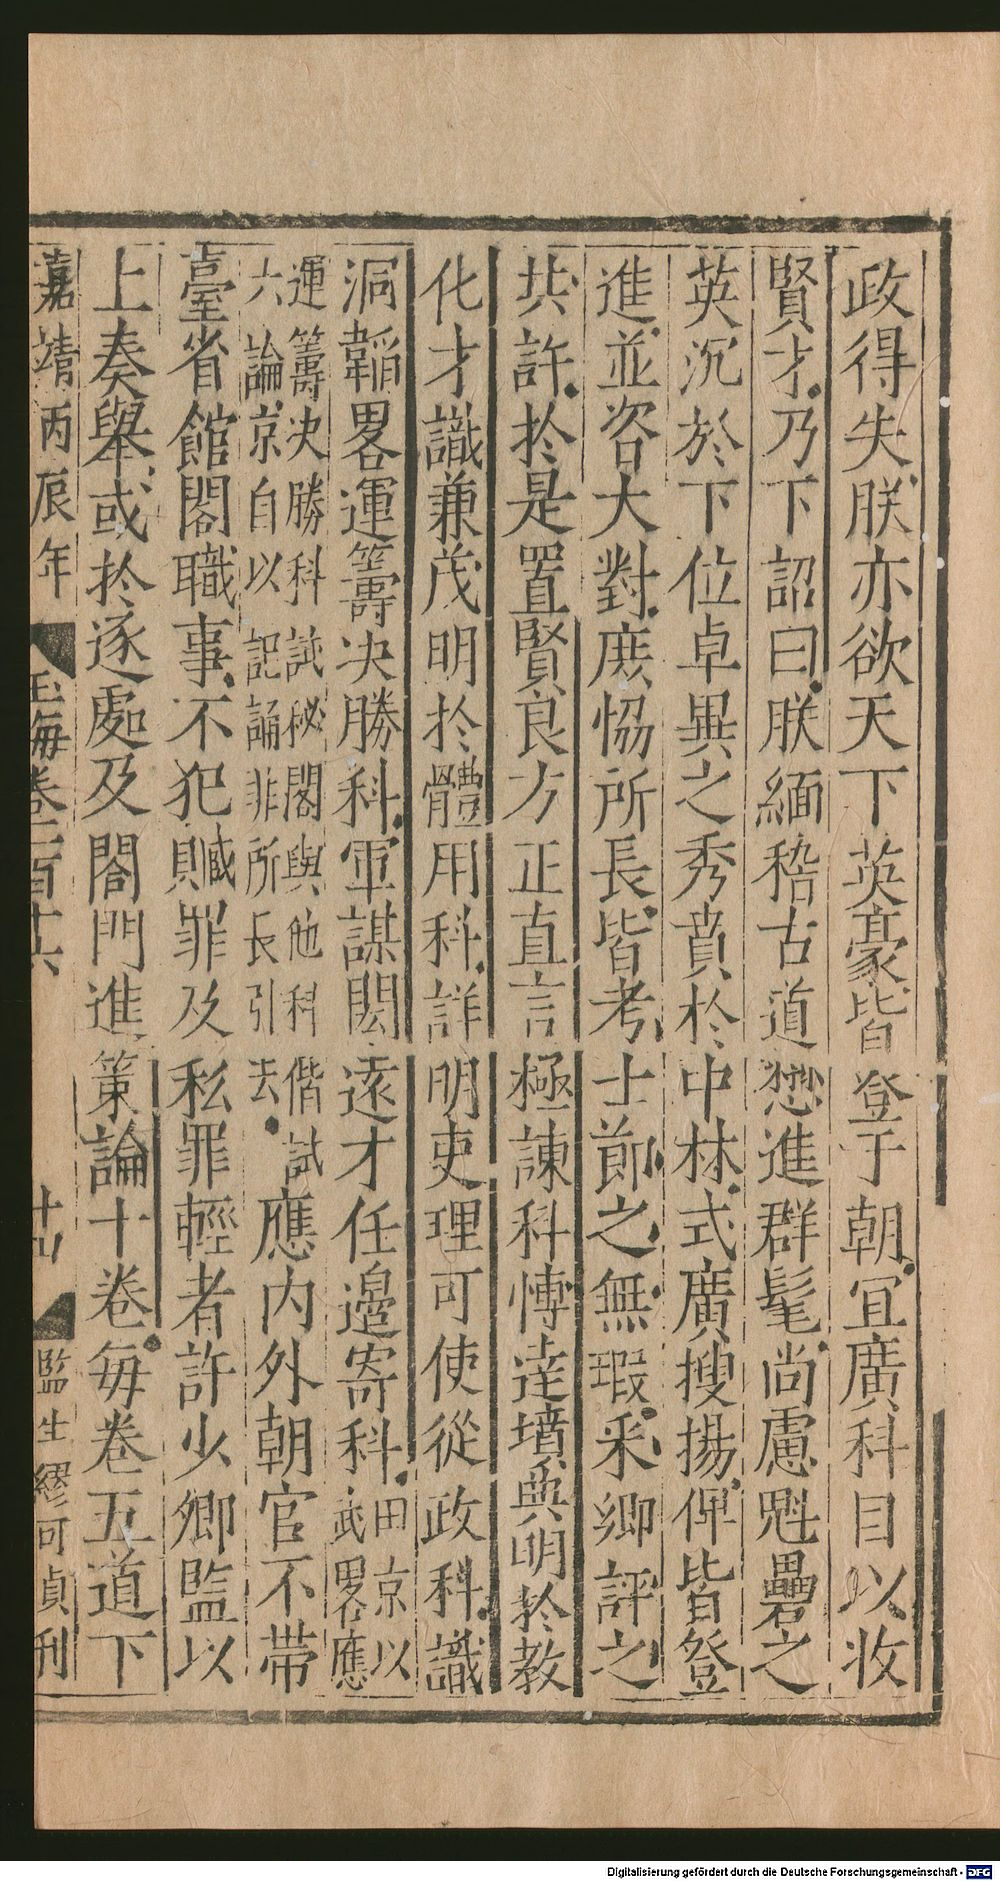 政得失朕亦欲天下英豪皆登于朝冝廣科目以收
賢才乃下詔曰朕緬稽古道懋進群髦尚慮魁礨之
英沉於下位卓異之秀賁於中林式廣搜揚俾皆登
進並咨大對庶恊所長皆考士節之無瑕采卿評之
共許於是置賢良方正直言極諫科愽達墳典明於教
化才識兼茂明於體用科詳明吏理可使從政科識
洞韜畧運籌决勝科軍謀閎遠才任邉寄科田京以
武畧應
運籌决勝科試秘閣與他科偕試
六論京自以記誦非所長引去
應内外朝官不带
臺省館閣職事不犯贓罪及私罪輕者許少卿監以
上奏舉或於逐處及閤門進策論十卷每卷五道下
嘉靖丙辰年
玉海卷一百十六
監生繆可貞刊
Digitalisierung gefördert durch die Deutsche Forschungsgemeinschaft - DFG